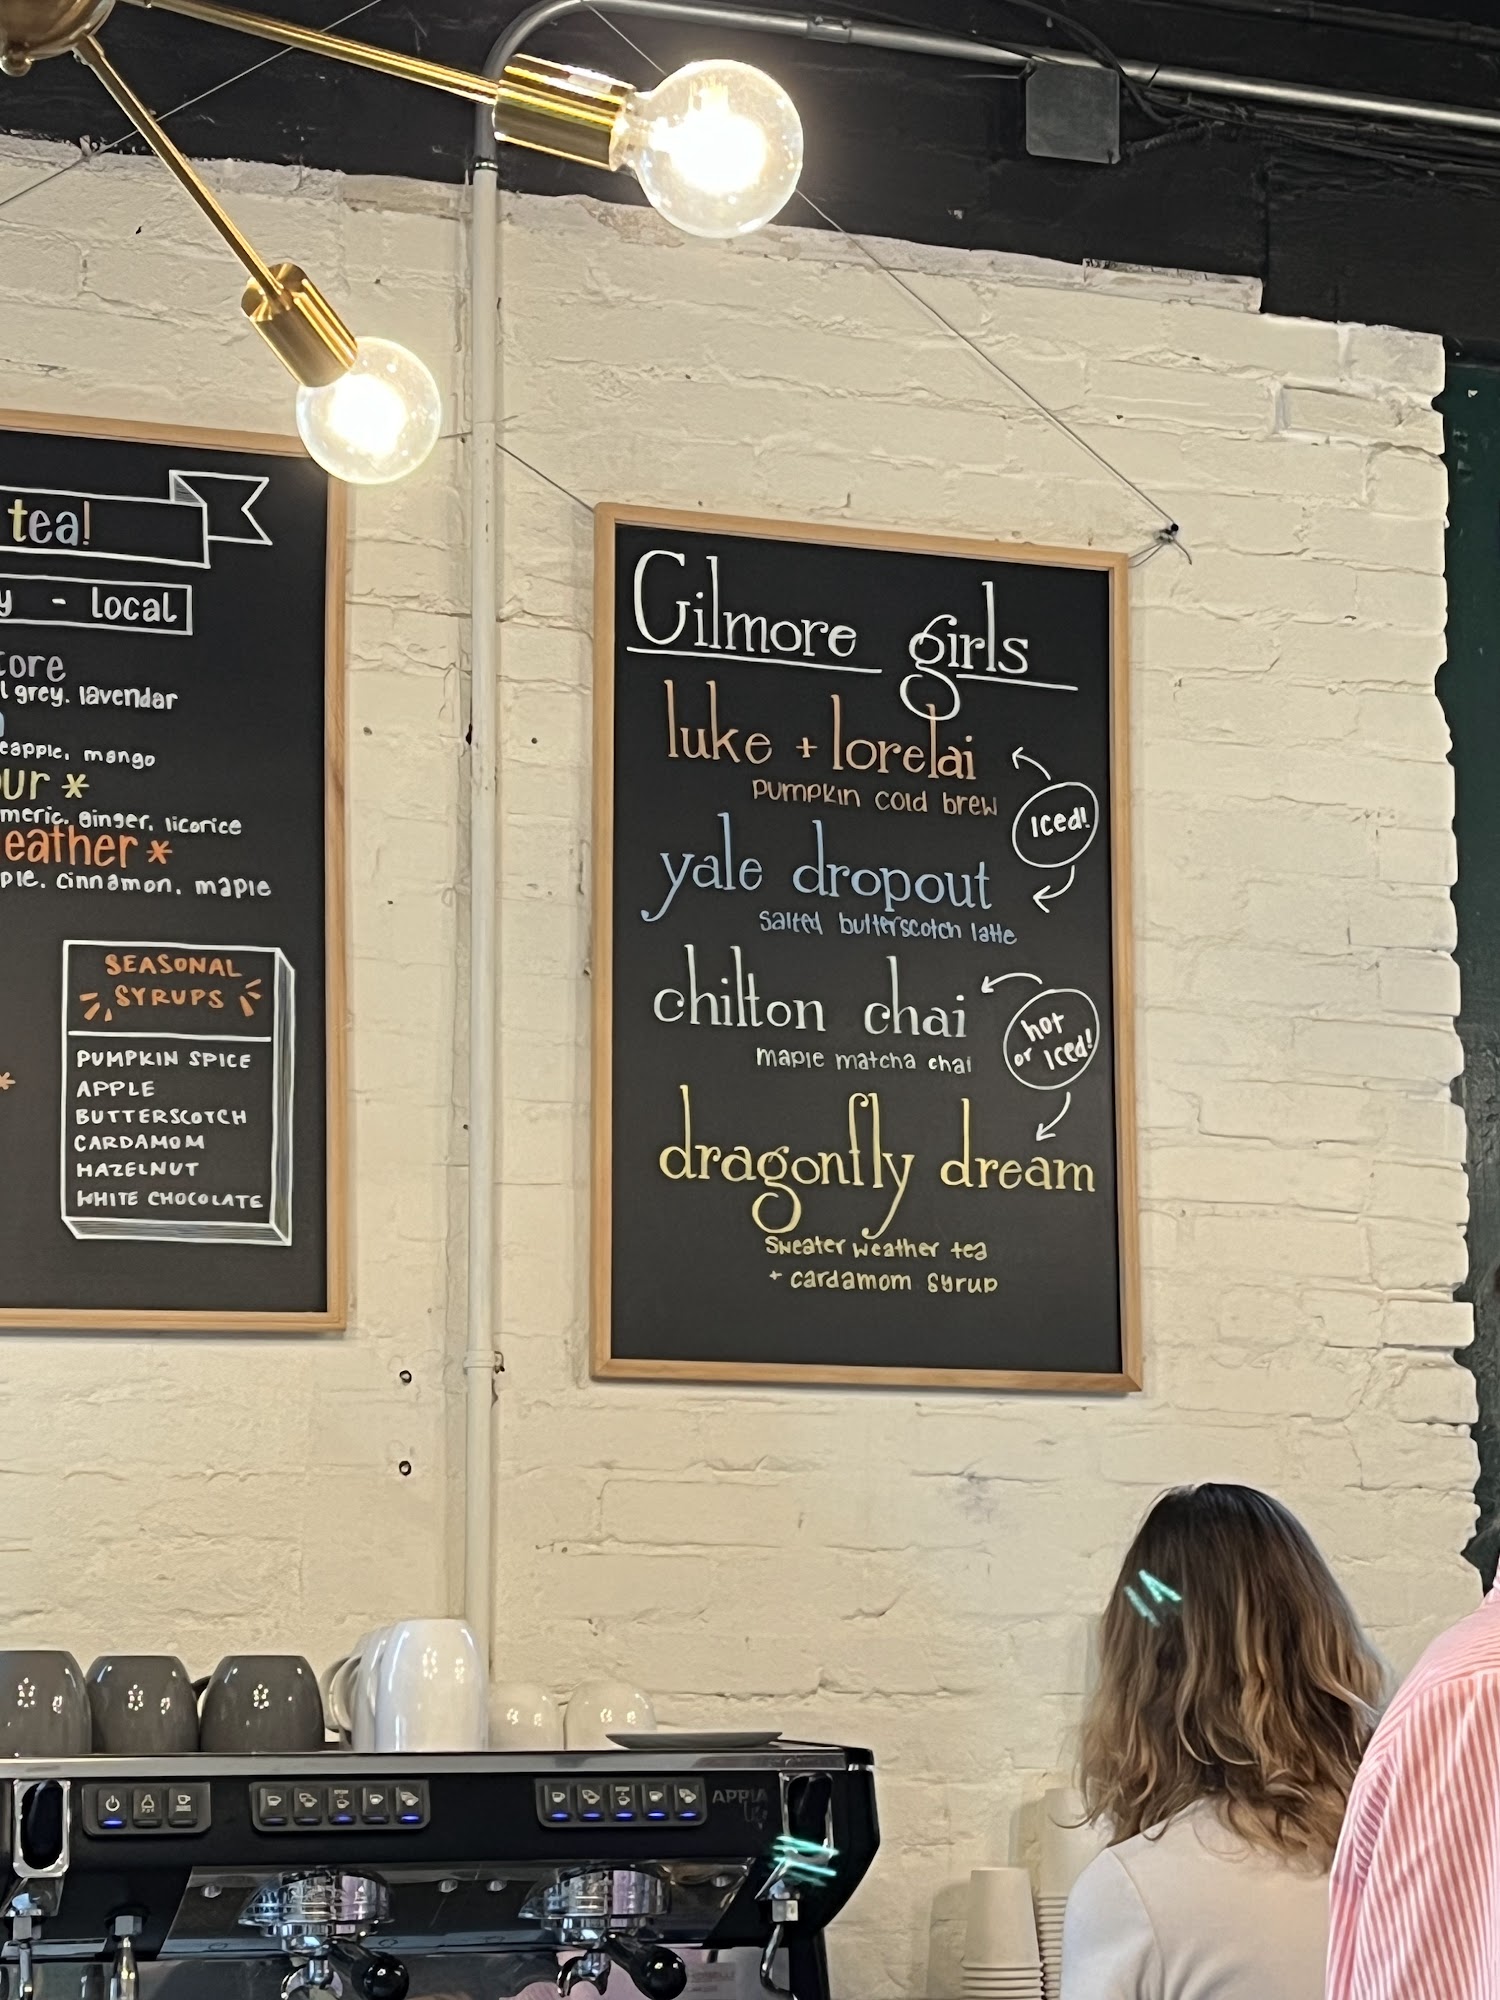 tea!
- local
grey. lavendar
mango
ginger, licorice
cinnamon, maple
SEASONAL
SYRUPS
PUMPKIN SPICE
APPLE
BUTTERSCOTCH
CARDAMOM
HAZELNUT
WHITE CHOCOLATE
Gilmore girls
luke + lorelai
pumpkin cold brew
Iced!
yale dropout
salted butterscotch latte
chilton chai
maple matcha chai
hot
or Iced!
dragonfly dream
Sweater weather tea
+ cardamom syrup
APPIA